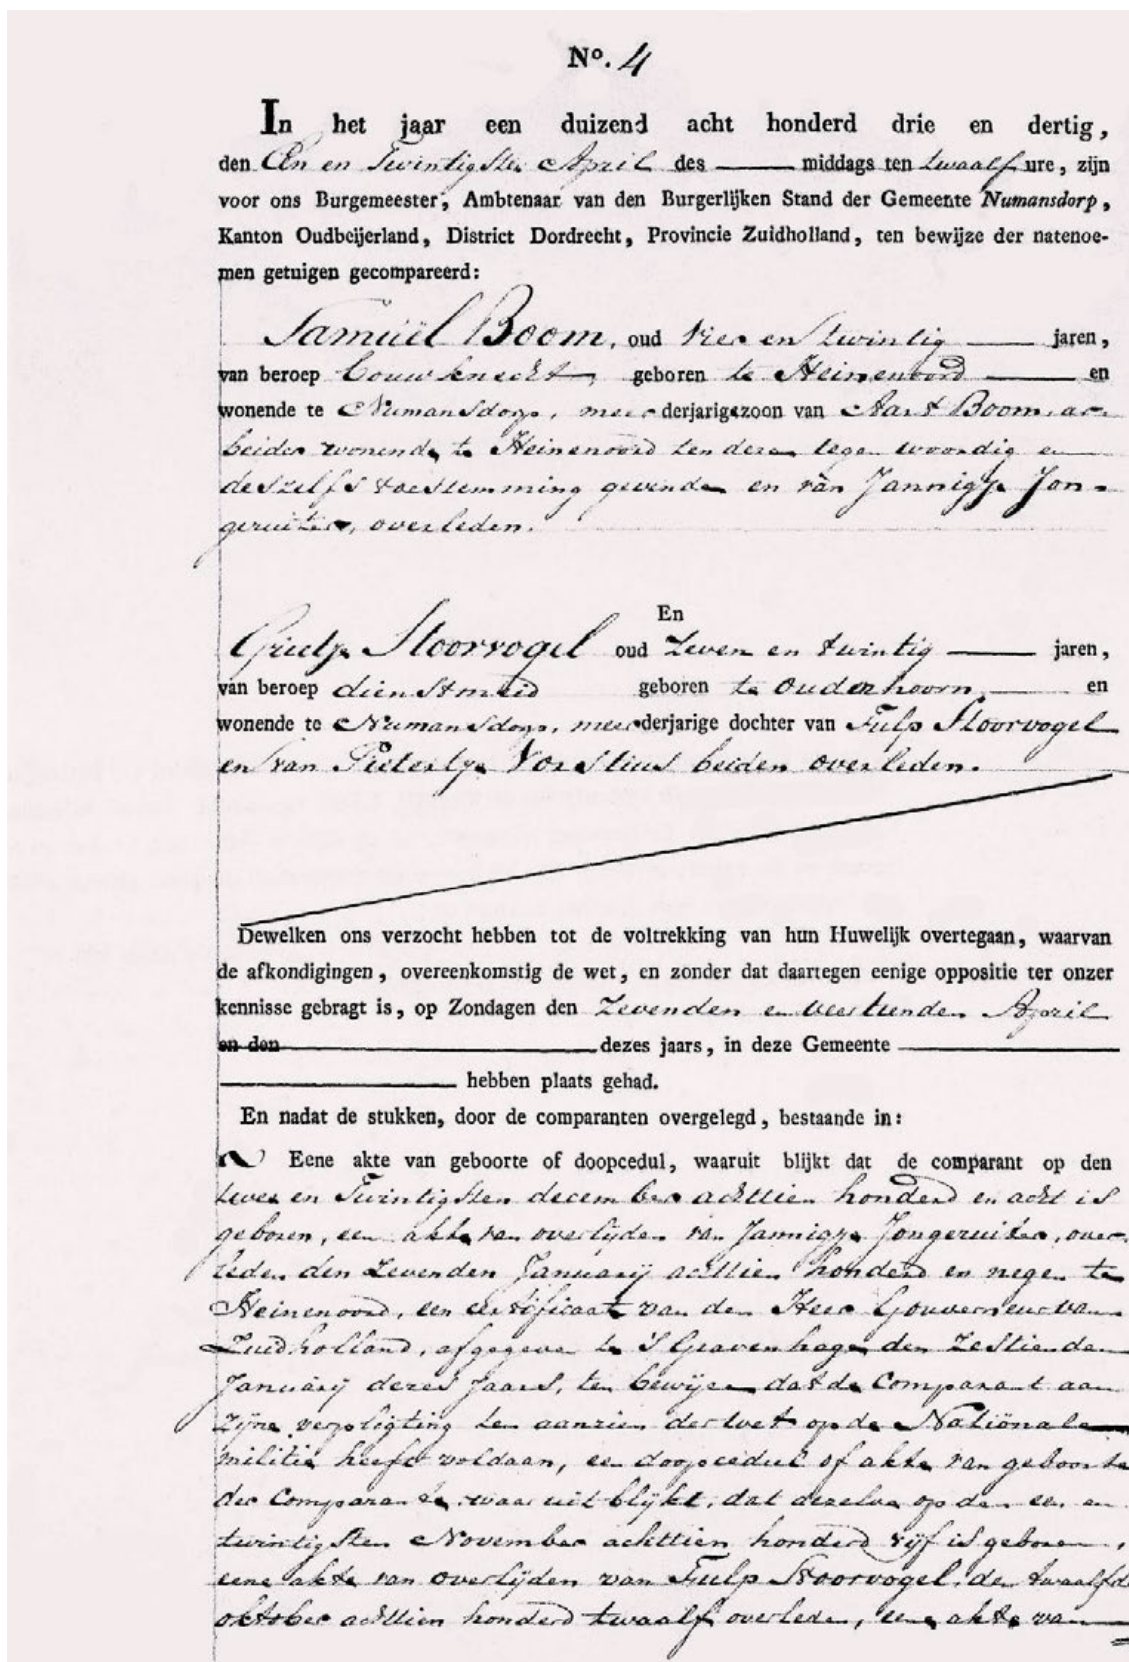 No. 4
In het jaar een duizend acht honderd drie en dertig,
den Een en Twintigsten April des —— middags ten twaalf ure, zijn
voor ons Burgemeester, Ambtenaar van den Burgerlijken Stand der Gemeente Numansdorp,
Kanton Oudbeijerland, District Dordrecht, Provincie Zuidholland, ten bewijze der natenoe-
men getuigen gecompareerd:
Samuël Boom, oud vier en twintig —— jaren,
van beroep bouwknecht, geboren te Heinenoord —— en
wonende te Numansdorp, meerderjarige zoon van Aart Boom, ar-
beider wonende te Heinenoord ten deze tegenwoordig en
deszelfs toestemming gevende en van Jannigje Jon-
geruiter, overleden.
En
Grietje Stoorvogel oud zeven en twintig —— jaren,
van beroep dienstmeid geboren te Oudenhoorn, —— en
wonende te Numansdorp, meerderjarige dochter van Tulp Stoorvogel
en van Pietertje Vorstius beiden overleden.
Dewelken ons verzocht hebben tot de voltrekking van hun Huwelijk overtegaan, waarvan
de afkondigingen, overeenkomstig de wet, en zonder dat daartegen eenige oppositie ter onzer
kennisse gebragt is, op Zondagen den Zevenden en veertienden April
en den —— dezes jaars, in deze Gemeente ——
—— hebben plaats gehad.
En nadat de stukken, door de comparanten overgelegd, bestaande in:
Eene akte van geboorte of doopcedul, waaruit blijkt dat de comparant op den
twee en Twintigsten december achttien honderd en acht is
geboren, een akte van overlyden van Jannigje Jongeruiter, over-
leden den Zevenden January achttien honderd en negen te
Heinenoord, een certificaat van den Heer Gouverneur van
Zuidholland, afgegeven te 's Gravenhage den Zestienden
January dezes Jaars, ten bewijze dat de Comparant aan
zijne verpligting ten aanzien der wet op de Nationale
militie heeft voldaan, een doopcedul of akte van geboorte
der Comparante, waaruit blijkt, dat dezelve op den een en
twintigsten November achttien honderd vijf is geboren,
eene akte van overlijden van Tulp Stoorvogel, den twaalfde
oktober achttien honderd twaalf overleden, eene akte van